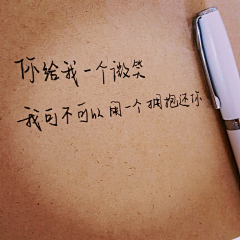 你给我一个微笑
我可不可以用一个拥抱还你